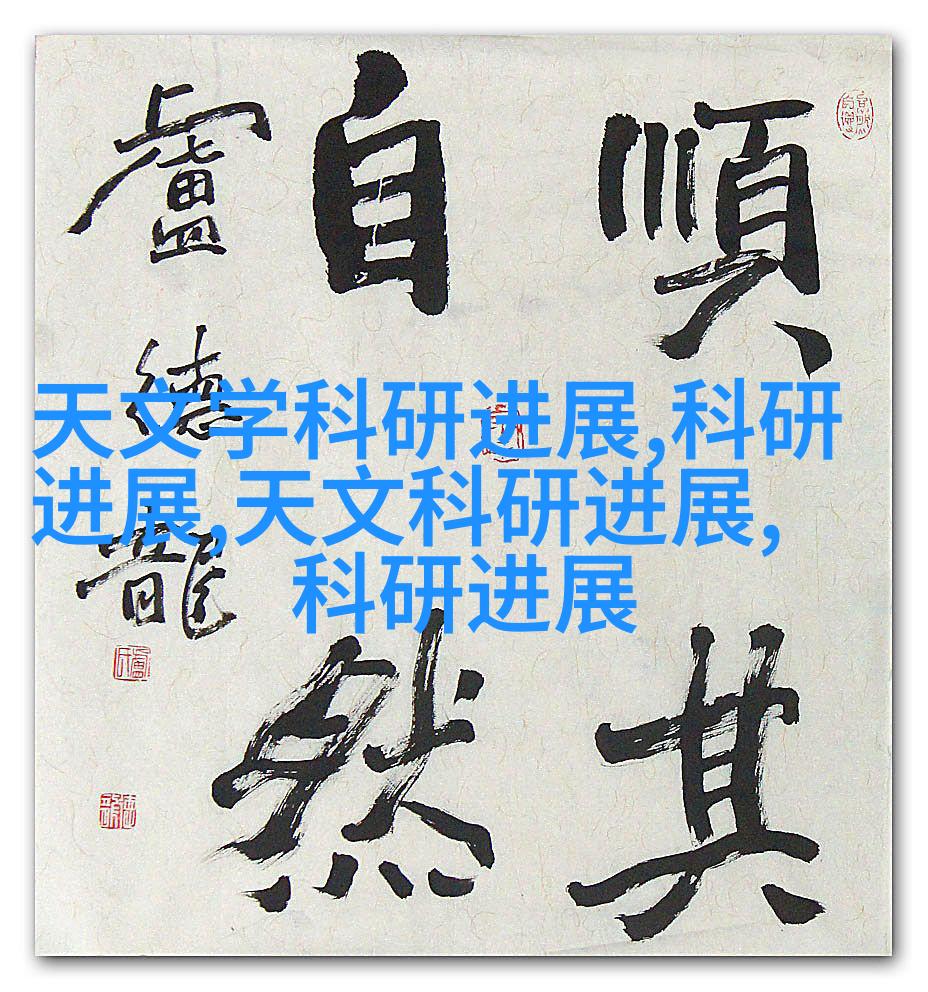 順其
自然
盧德龍
天文学科研进展,科研
进展,天文科研进展,
科研进展